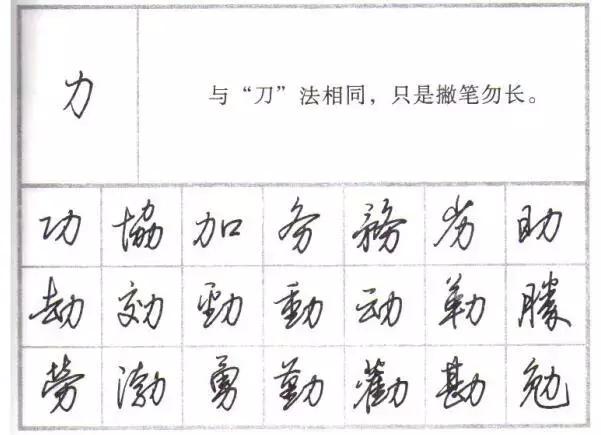 力
与“刀”法相同，只是撇笔勿长。
功 協 加 务 務 劣 助
劫 効 勁 動 动 勒 勝
勞 渤 勇 勤 勸 勘 勉